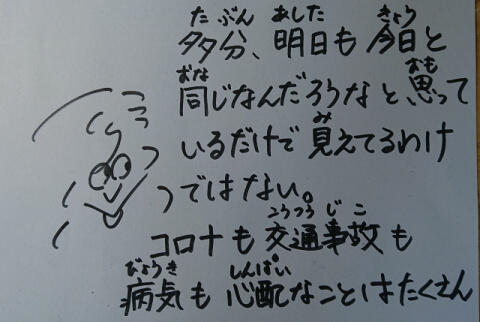 たぶん あした きょう
多分、明日も今日と
おな おも
同じなんだろうなと、思って
み
いるだけで見えてるわけ
ではない。
こうつう じこ
コロナも交通事故も
びょうき しんぱい
病気も心配なことはたくさん